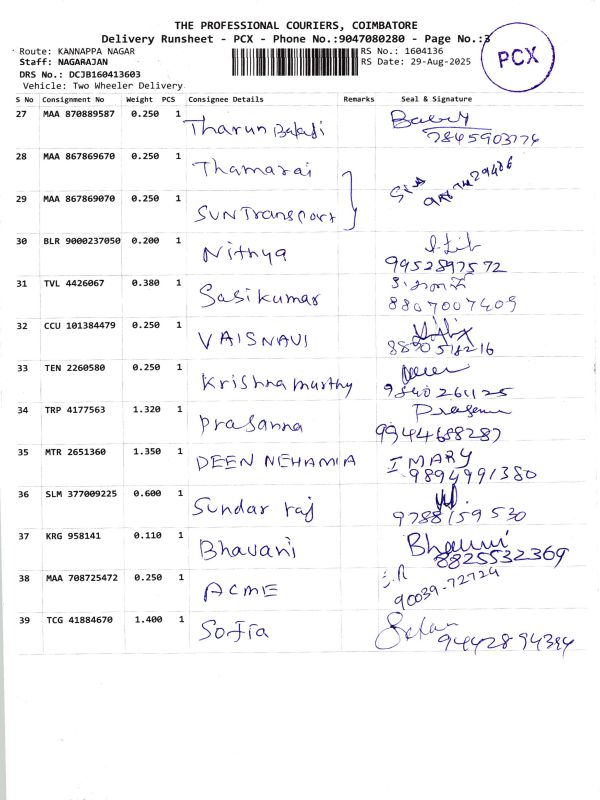 THE PROFESSIONAL COURIERS, COIMBATORE
Delivery Runsheet - PCX - Phone No.:9047080280 - Page No.:3
Route: KANNAPPA NAGAR RS No.: 1604136
Staff: NAGARAJAN RS Date: 29-Aug-2025
DRS No.: DCJB160413603
Vehicle: Two Wheeler Delivery
PCX
S No Consignment No Weight PCS Consignee Details Remarks Seal & Signature
27 MAA 870889587 0.250 1 Tharun Balaji
7845903774
28 MAA 867869670 0.250 1 Thamarai
29 MAA 867869070 0.250 1 SUN Transport
30 BLR 9000237050 0.200 1 Nithya
9952897572
31 TVL 4426067 0.380 1 Sasikumar
8807007409
32 CCU 101384479 0.250 1 VAISNAVI
33 TEN 2260580 0.250 1 Krishna murthy
9840261125
34 TRP 4177563 1.320 1 Prasanna
9944688287
35 MTR 2651360 1.350 1 DEEN NEHAMIA I MARY
9894991380
36 SLM 377009225 0.600 1 Sundar raj
9788159530
37 KRG 958141 0.110 1 Bhavani
8825532369
38 MAA 708725472 0.250 1 ACME
90039-72724
39 TCG 41884670 1.400 1 Sofia
9442894394